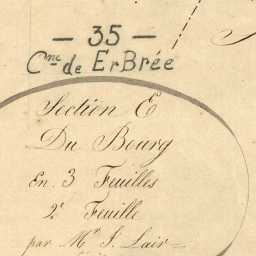 — 35 —
Cne de ErBrée
Section E
Du Bourg
En 3 Feuilles
2e Feuille
par Mr J. Lair